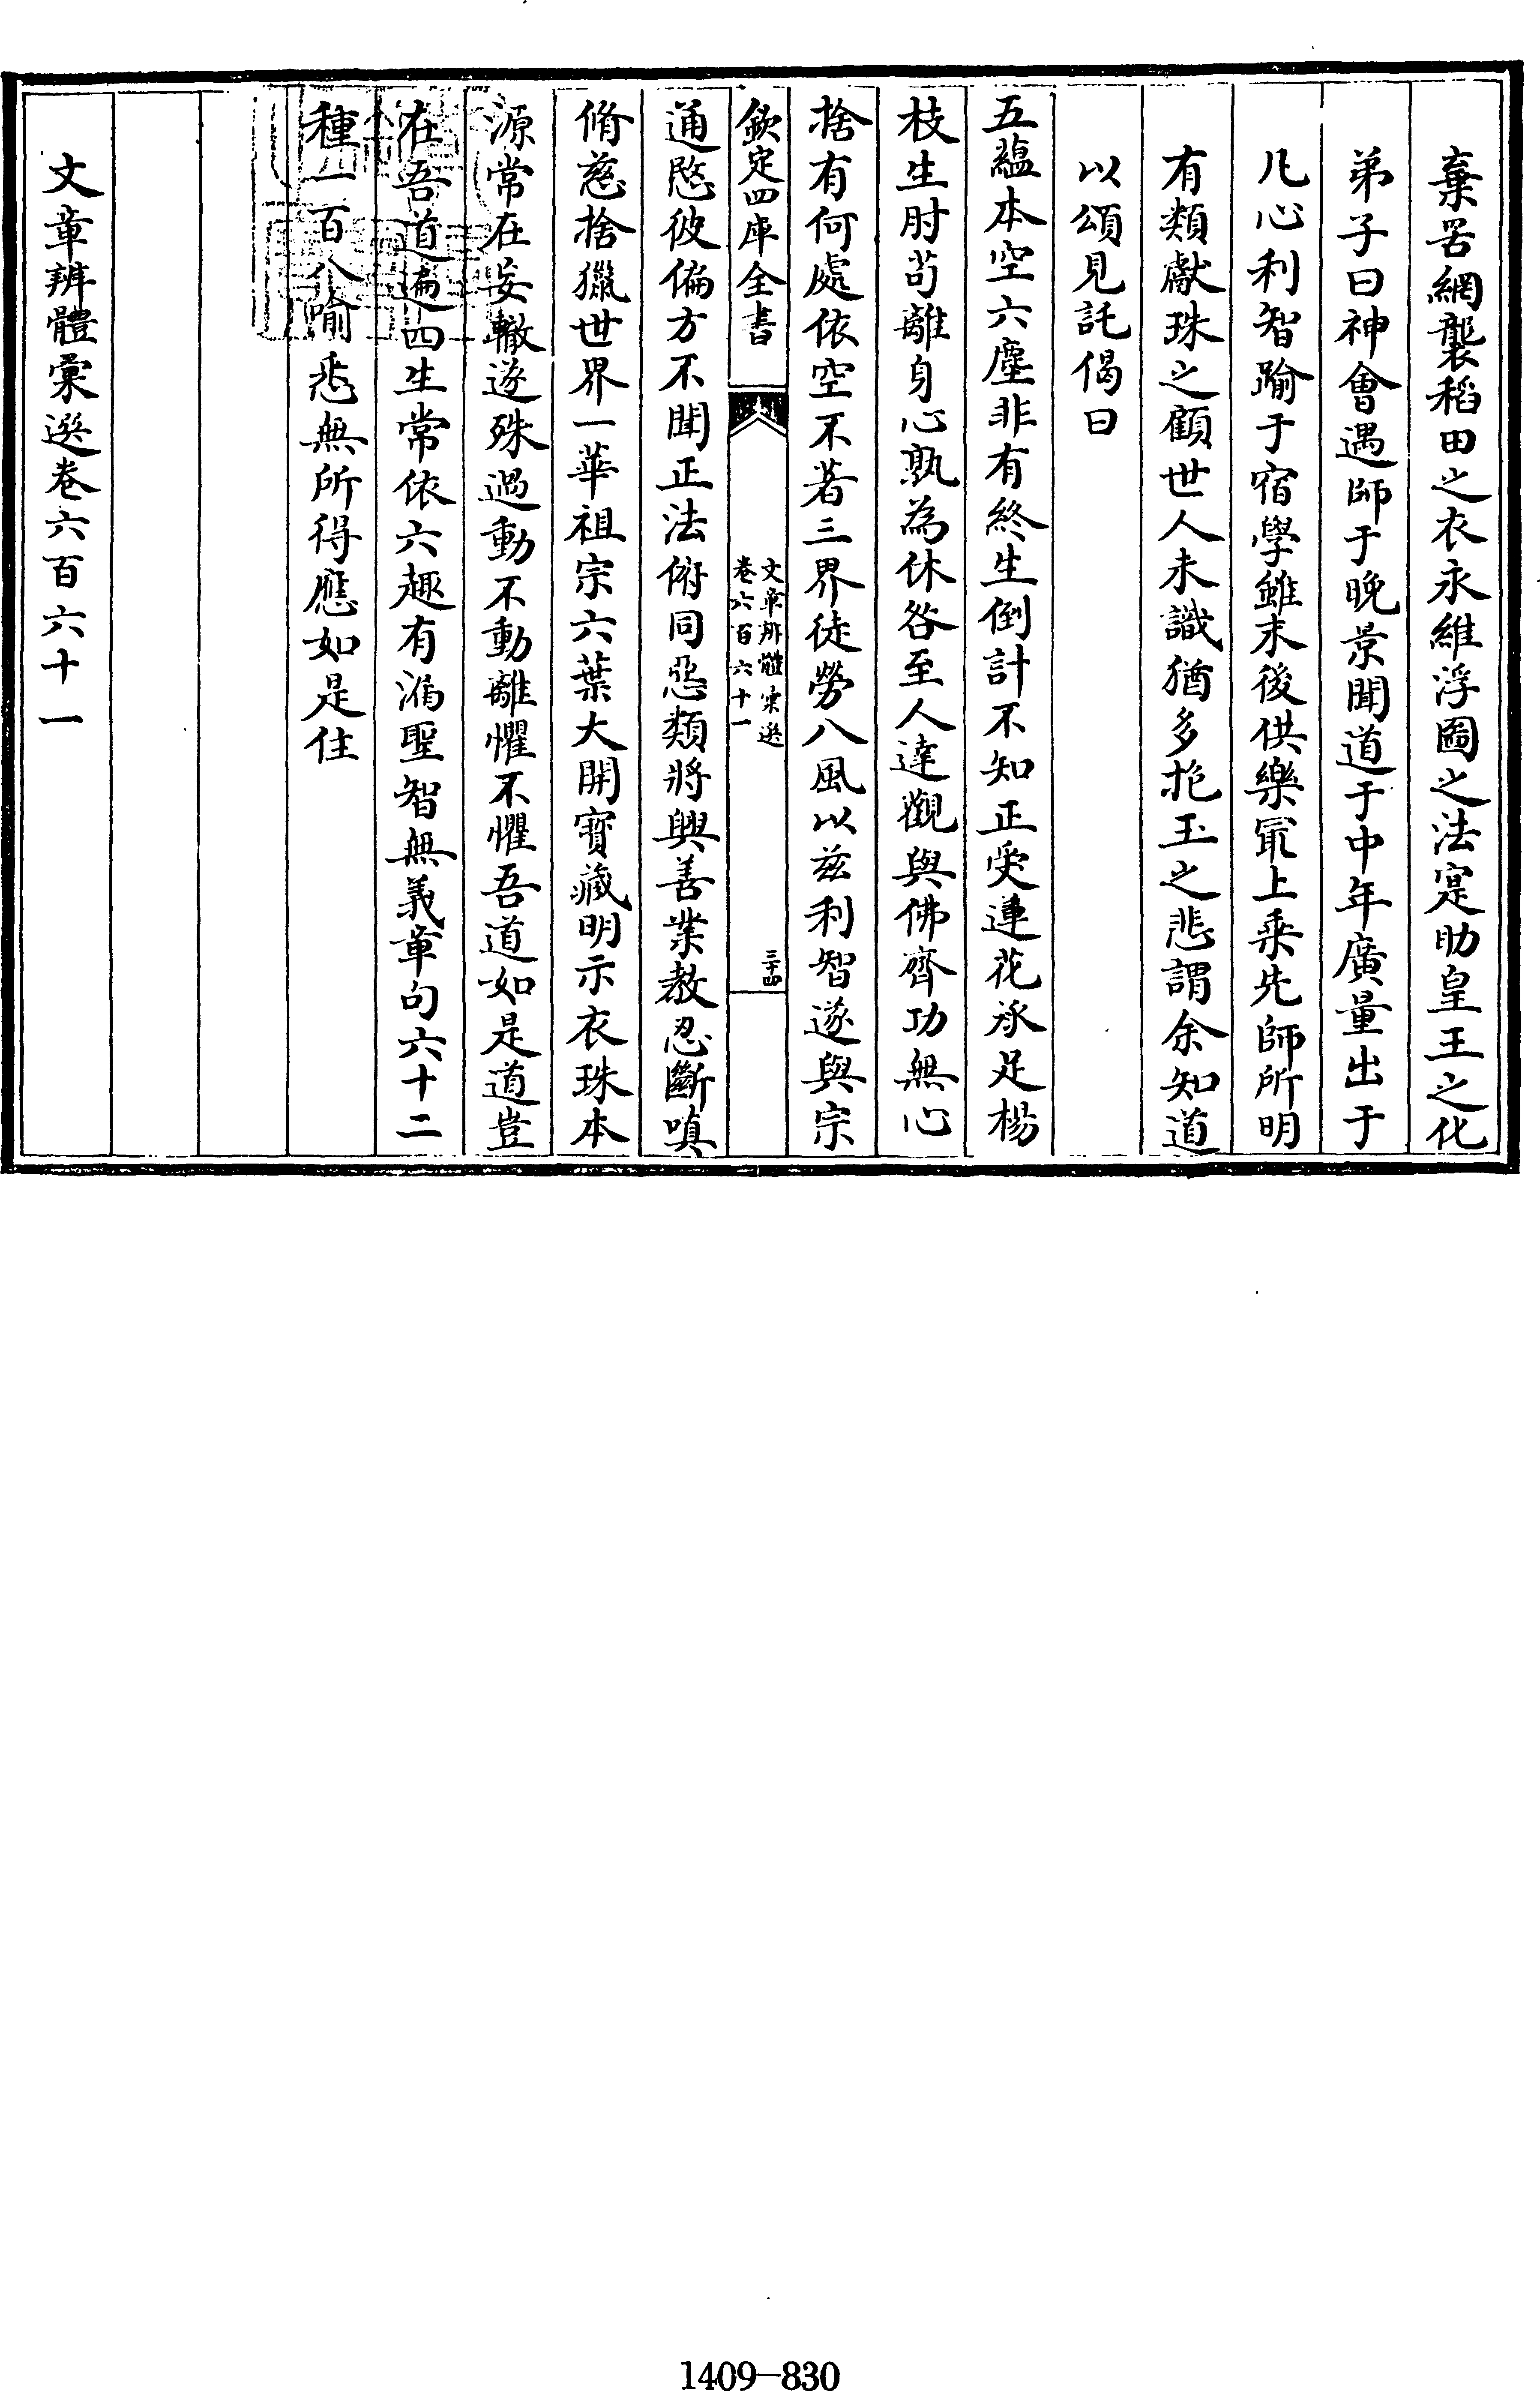 棄罟網襲稻田之衣永維浮圖之法寔助皇王之化
弟子曰神會遇師于晚景聞道于中年廣量出于
凡心利智踰于宿學雖末後供樂冣上乘先師所明
有類獻珠之顧世人未識猶多抱玉之悲謂余知道
以頌見託偈曰
五蘊本空六塵非有終生倒計不知正受蓮花承足楊
枝生肘苟離身心孰為休咎至人達觀與佛齊功無心
捨有何處依空不著三界徒勞八風以兹利智遂與宗
欽定四庫全書
文章辨體彚選
卷六百六十一
三十四
通愍彼偏方不聞正法俯同惡類將興善業教忍斷嗔
脩慈捨獵世界一華祖宗六葉大開寳藏明示衣珠本
源常在妄轍遂殊過動不動離懼不懼吾道如是道豈
在吾道遍四生常依六趣有漏聖智無義章句六十二
種一百八喻悉無所得應如是住
文章辨體彚選卷六百六十一
1409-830